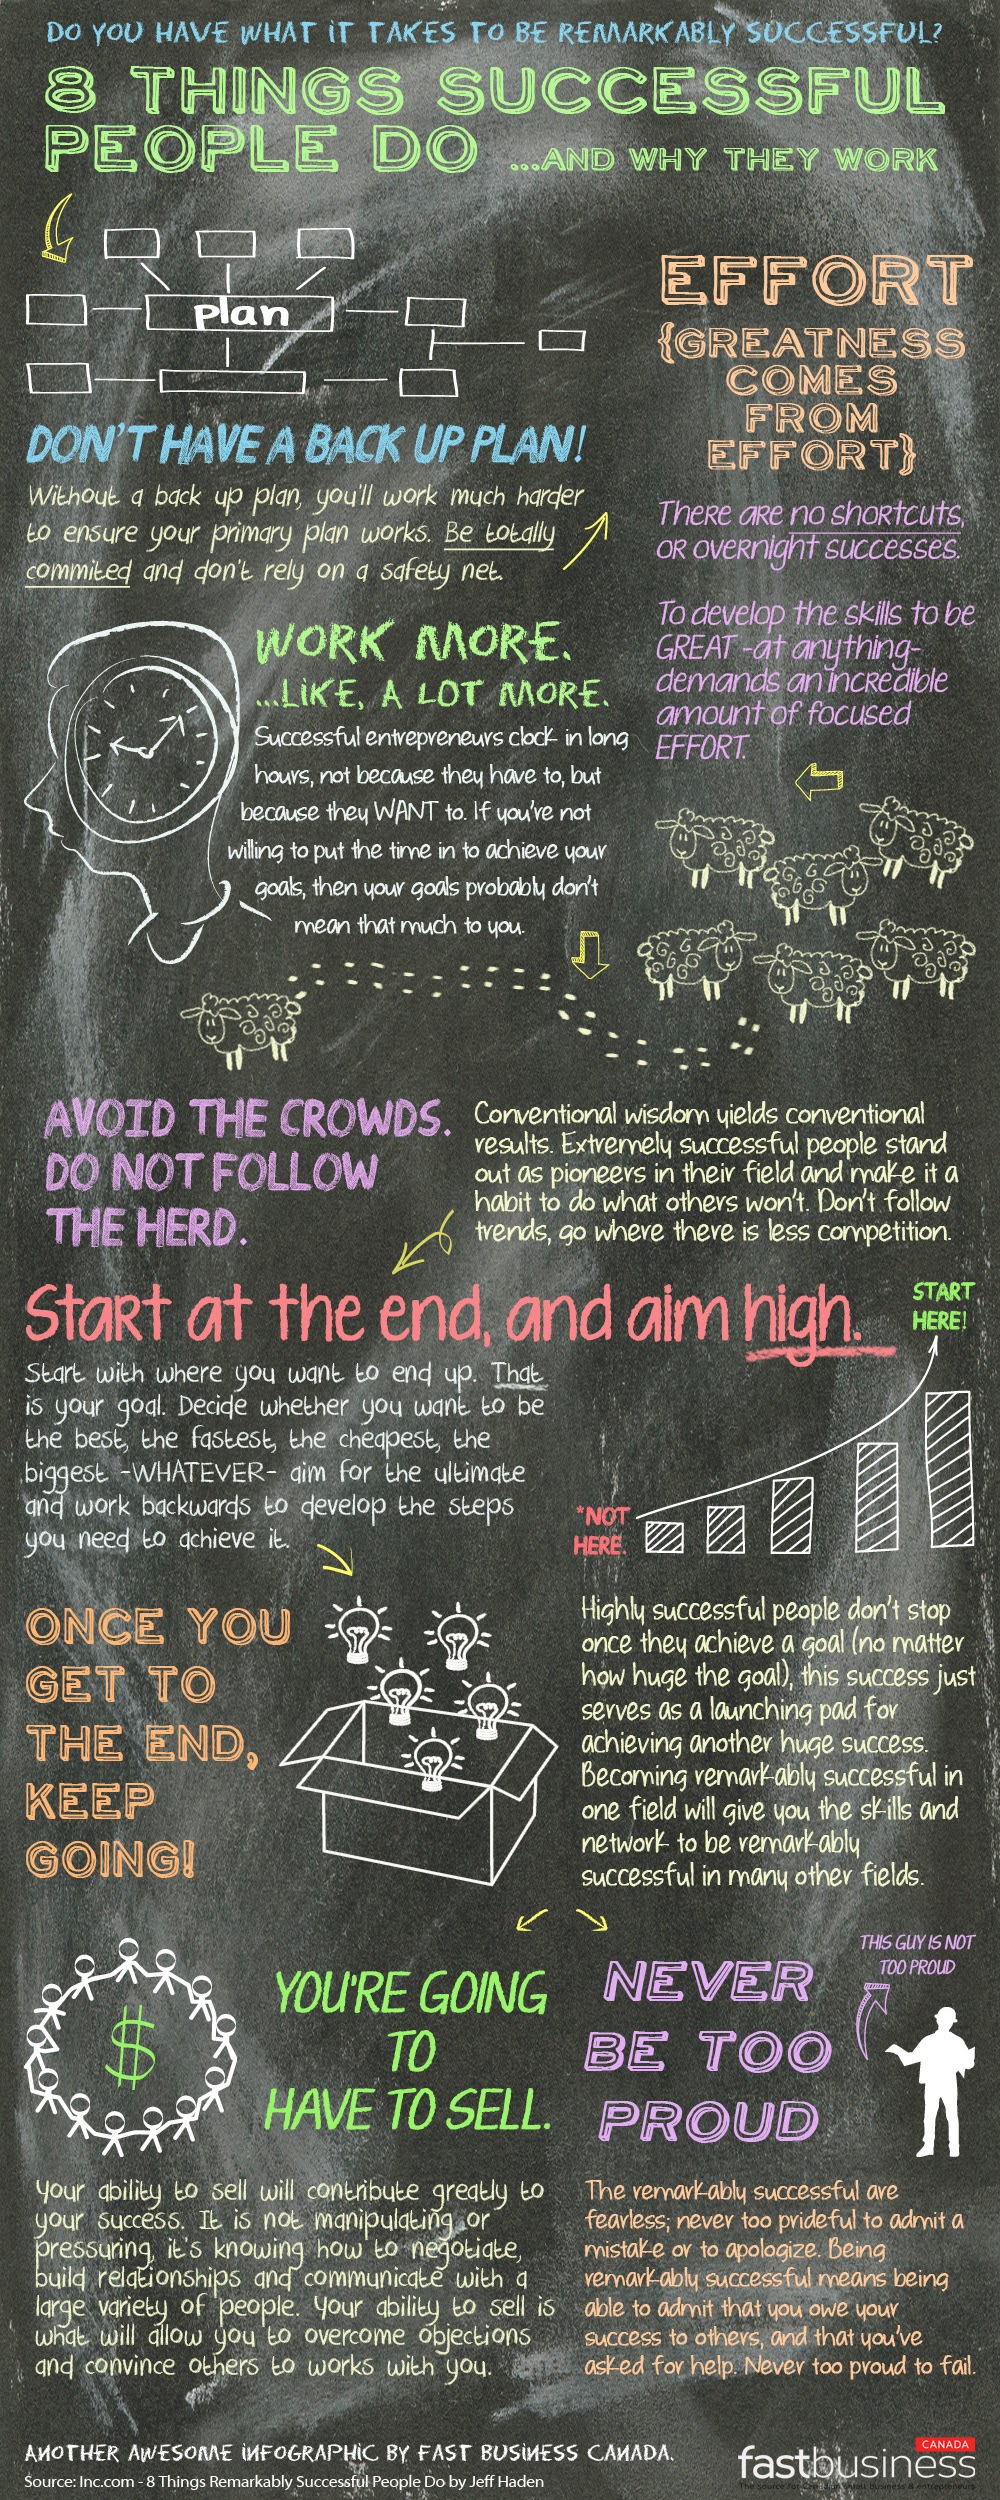 DO YOU HAVE WHAT IT TAKES TO BE REMARKABLY SUCCESSFUL?
8 THINGS SUCCESSFUL
PEOPLE DO ...AND WHY THEY WORK
plan
DON'T HAVE A BACK UP PLAN!
Without a back up plan, you'll work much harder
to ensure your primary plan works. Be totally
commited and don't rely on a safety net.
EFFORT
{GREATNESS
COMES
FROM
EFFORT}
There are no shortcuts,
or overnight successes.
To develop the skills to be
GREAT -at anything-
demands an incredible
amount of focused
EFFORT.
WORK MORE.
...LIKE, A LOT MORE.
Successful entrepreneurs clock in long
hours, not because they have to, but
because they WANT to. If you're not
willing to put the time in to achieve your
goals, then your goals probably don't
mean that much to you.
AVOID THE CROWDS.
DO NOT FOLLOW
THE HERD.
Conventional wisdom yields conventional
results. Extremely successful people stand
out as pioneers in their field and make it a
habit to do what others won't. Don't follow
trends, go where there is less competition.
Start at the end, and aim high.
START
HERE!
*NOT
HERE.
Start with where you want to end up. That
is your goal. Decide whether you want to be
the best, the fastest, the cheapest, the
biggest -WHATEVER- aim for the ultimate
and work backwards to develop the steps
you need to achieve it.
ONCE YOU
GET TO
THE END,
KEEP
GOING!
Highly successful people don't stop
once they achieve a goal (no matter
how huge the goal), this success just
serves as a launching pad for
achieving another huge success.
Becoming remarkably successful in
one field will give you the skills and
network to be remarkably
successful in many other fields.
$
YOU'RE GOING
TO
HAVE TO SELL.
Your ability to sell will contribute greatly to
your success. It is not manipulating or
pressuring, it's knowing how to negotiate,
build relationships and communicate with a
large variety of people. Your ability to sell is
what will allow you to overcome objections
and convince others to works with you.
NEVER
BE TOO
PROUD
THIS GUY IS NOT
TOO PROUD
The remarkably successful are
fearless; never too prideful to admit a
mistake or to apologize. Being
remarkably successful means being
able to admit that you owe your
success to others, and that you've
asked for help. Never too proud to fail.
ANOTHER AWESOME INFOGRAPHIC BY FAST BUSINESS CANADA.
Source: Inc.com - 8 Things Remarkably Successful People Do by Jeff Haden
CANADA
fastbusiness
The source for Canadian small business & entrepreneurs